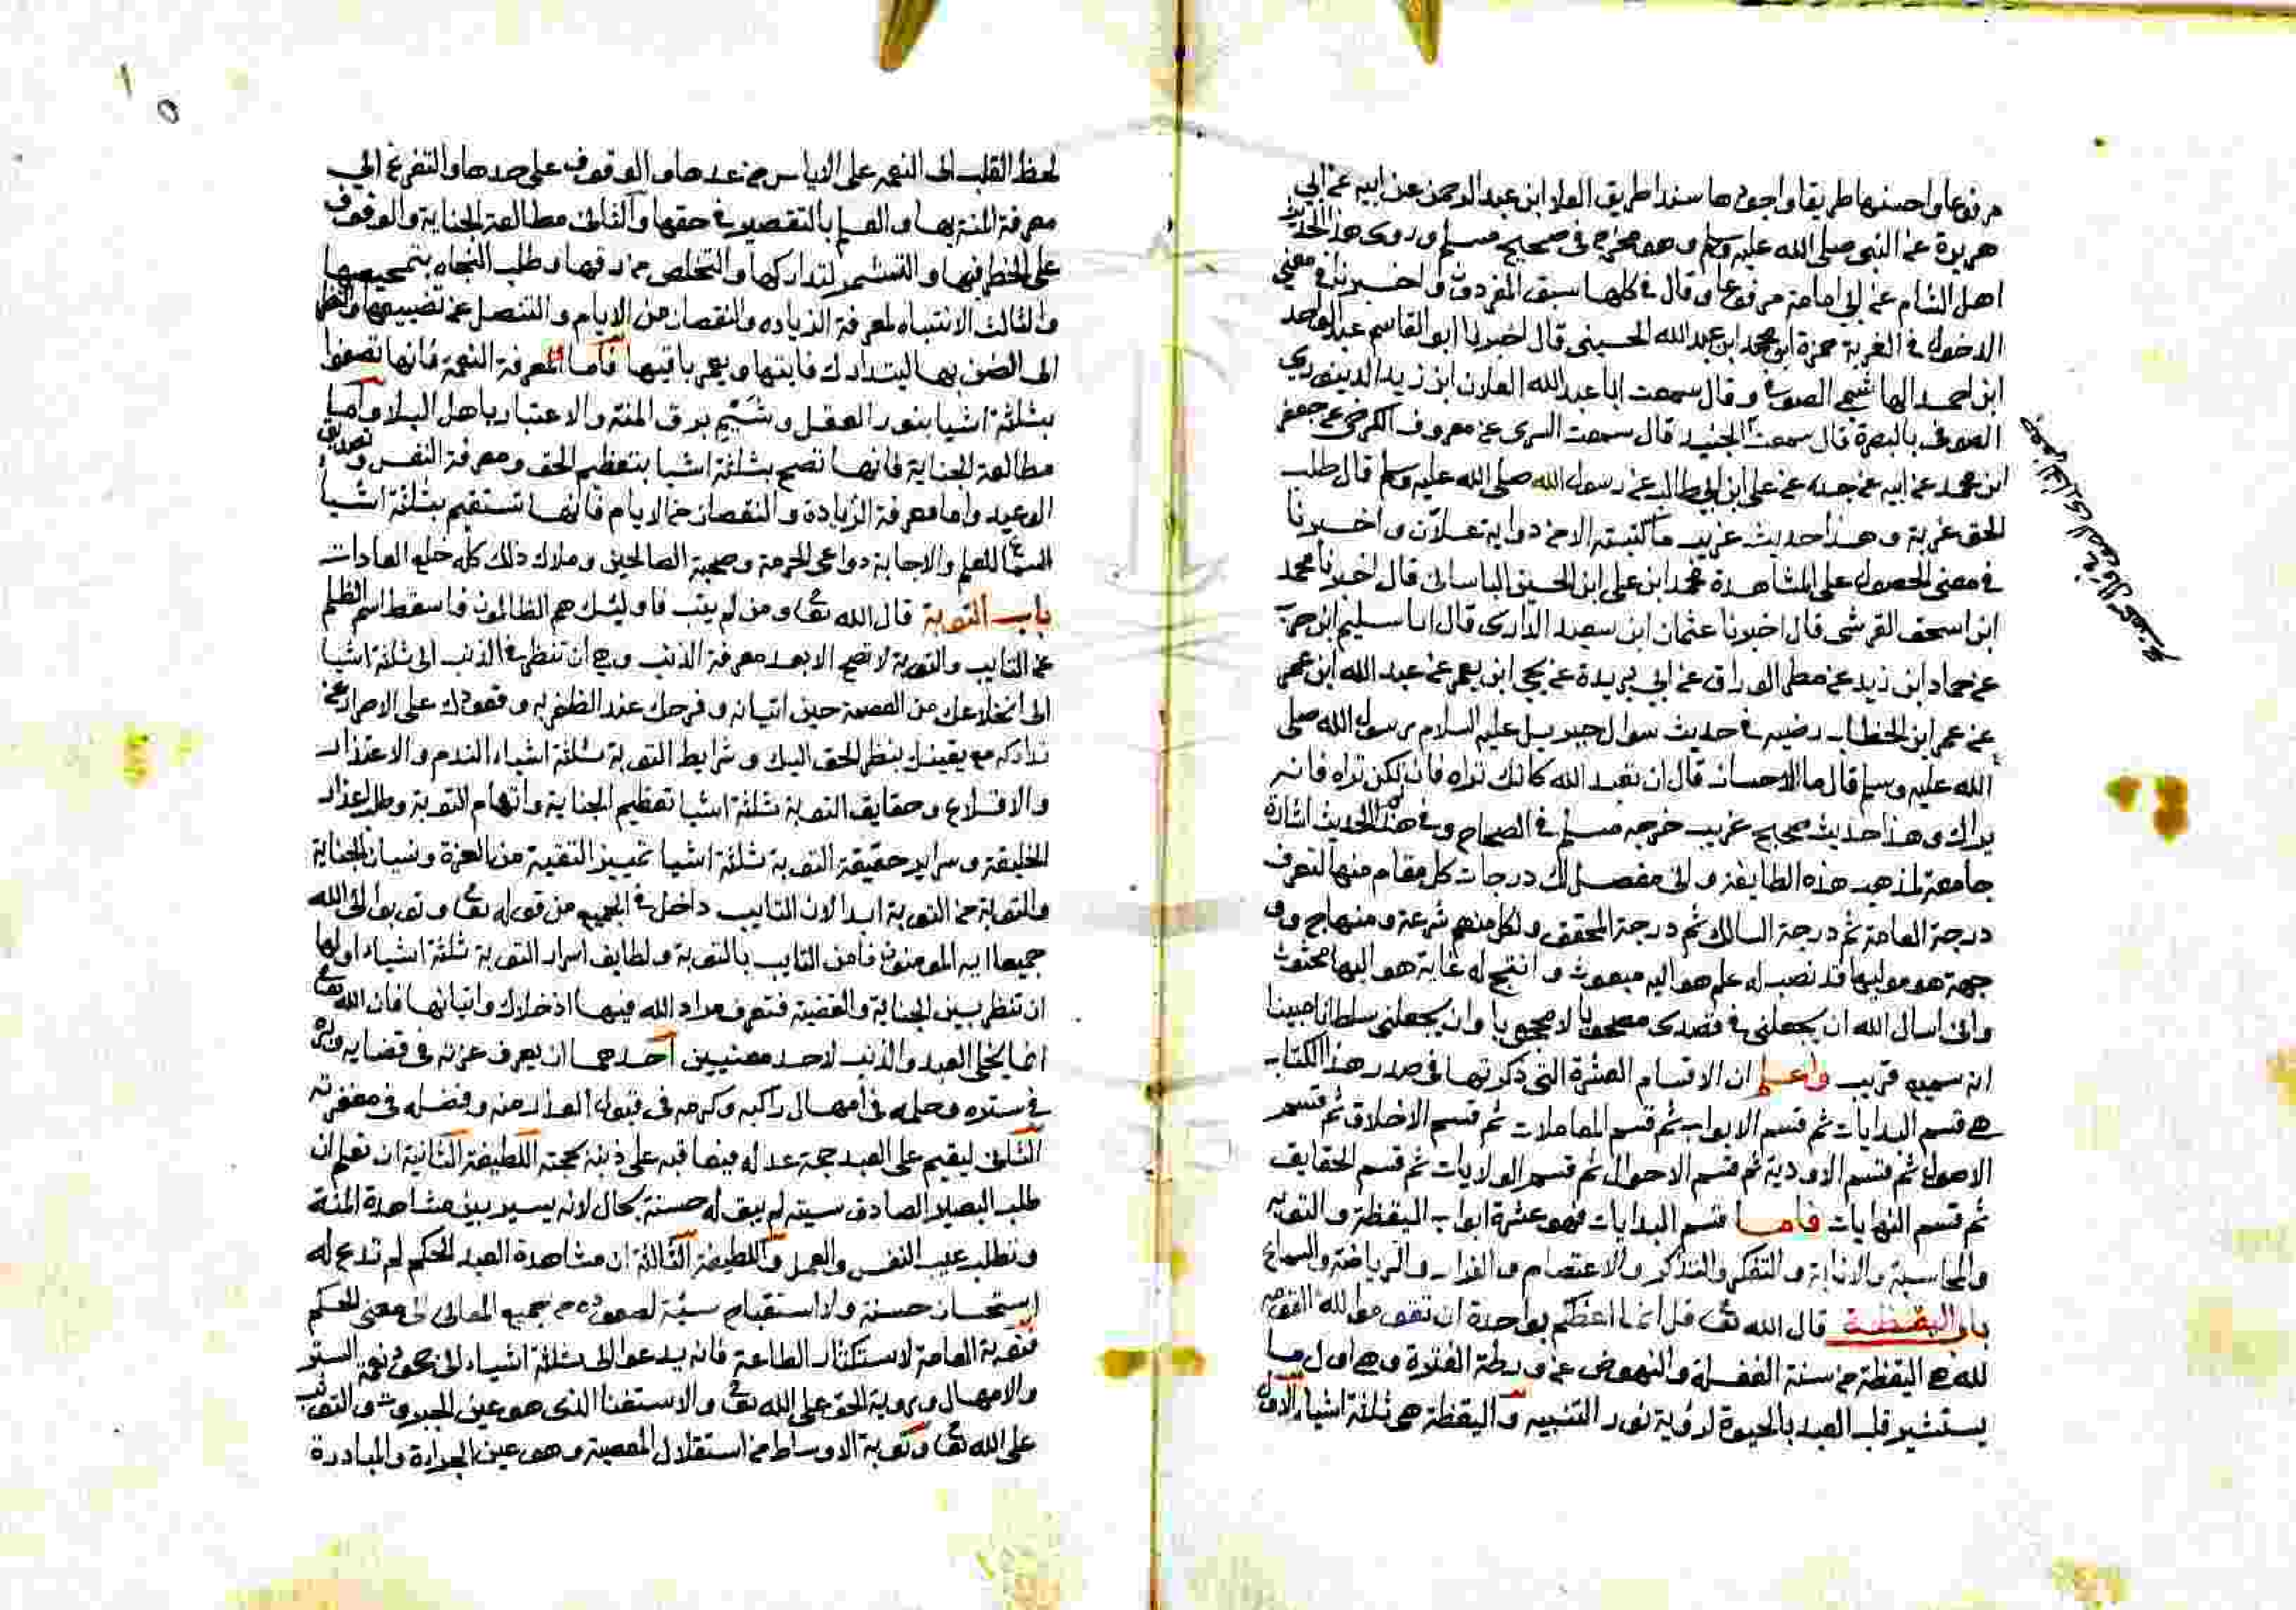 مرفوعا واحسنها طريقا واجودها سندا طريق العلا ابن عبد الرحمن عن ابيه عن ابي
هريرة عن النبي صلى الله عليه وسلم وهو مخرج في صحيح مسلم وروى هذا الحديث
اهل الشام عن ابي امامة مرفوعا وقال في كلها سبق المفردون واخبرنا في معنى
الدخول في الغربة حمزة ابن محمد ابن عبد الله الحسيني قال اخبرنا ابو القاسم عبد الواحد
ابن احمد الهاشمي الصوفي وقال سمعت ابا عبد الله العلان ابن زيد الدينوري
الصوفي بالبصرة قال سمعت الجنيد قال سمعت السري عن معروف الكرخي عن جعفر
ابن محمد عن ابيه عن جده عن علي ابن ابي طالب عن رسول الله صلى الله عليه وسلم قال طلب
الحق غربة وهذا حديث غريب ما كتبته الا من رواية علان واخبرنا
في معنى الحصول على المشاهدة محمد ابن علي ابن الحسين الباساني قال اخبرنا محمد
ابن اسحق القرشي قال اخبرنا عثمان ابن سعيد الداري قال انا سليم ابن حرب
عن حماد ابن زيد عن مطر الوراق عن ابي بريدة عن يحي ابن يعمر عن عبد الله ابن عمر
عن عمر ابن الخطاب رضيه في حديث سوال جبريل عليه السلام رسول الله صلى
الله عليه وسلم قال ما الاحسان قال ان تعبد الله كانك تراه فان لم تكن تراه فانه
يراك وهذا حديث صحيح غريب خرجه مسلم في الصحاح وفي هذا الحديث اشارة
جامعة لمذهب هذه الطايفة واني مفصل لك درجات كل مقام منها لتعرف
درجة العامة ثم درجة السالك ثم درجة المحقق ولكل منهم شرعة ومنهاج و
جهة هو موليها قد نصب له علم هو اليه مبعوث وانتج له غاية هو اليها محثوث
واني اسال الله ان يجعلني في قصدي مصحوبا لا محجوبا وان يجعلني سلطانا مبينا
انه سميع قريب واعلم ان الاقسام العشرة التي ذكرتها في صدر هذا الكتاب
هي قسم البدايات ثم قسم الابواب ثم قسم المعاملات ثم قسم الاخلاق ثم قسم
الاصول ثم قسم الاودية ثم قسم الاحوال ثم قسم الولايات ثم قسم الحقايق
ثم قسم النهايات فاما قسم البدايات فهو عشرة ابواب اليقظة والتوبة
والمحاسبة والانابة والتفكر والتذكر والاعتصام والفرار والرياضة والسماع
باب اليقظة قال الله تعا قل انما اعظكم بواحدة ان تقوموا لله القومه
لله هي اليقظة من سنة الغفلة والنهوض عن ورطة الفترة وهي اول ما
يستنير قلب العبد بالحيوة لرؤية نور التنبيه واليقظة هي ثلثة اشياء الاول
لحظ القلب الى النعمة على الاياس من عدها والوقوف على حدها والتفرغ الى
معرفة المنة بها والعلم بالتقصير في حقها والثاني مطالعة الجناية والوقوف
على الخطر فيها والتشمر لتداركها والتخلص من رقها وطلب النجاه بتمحيصها
والثالث الانتباه لمعرفة الزياده والنقصان من الايام والتنصل عن تضييعها والنظر
الى الضن بها ليتدارك فايتها ويعمر باقيها فاما معرفة النعمة فانها تصفوا
بثلثة اشيا بنور العقل وشيم برق المنة والاعتبار باهل البلا واما
مطالعة الجناية فانها تصح بثلثة اشيا بتعظيم الحق ومعرفة النفس وتصديق
الوعيد واما معرفة الزيادة والنقصان من الايام فانها تستقيم بثلثة اشيا
السماع للعلم والاجابة دواعي الحرمة وصحبة الصالحين وملاك ذلك كله خلع العادات
باب التوبة قال الله تعا ومن لم يتب فاوليئك هم الظالمون فاسقط اسم الظلم
عن التايب والتوبة لا تصح الا بعد معرفة الذنب وهي ان تنظر في الذنب الى ثلثة اشيا
الى انخلاعك من العصمة حين اتيانه وفرحك عند الظفر به وقعودك على الاصرار عن
تداركه مع يقينك بنظر الحق اليك وشرايط التوبة ثلثة اشياء الندم والاعتذار
والاقلاع وحقايق التوبة ثلثة اشيا تعظيم الجناية واتهام التوبة وطلب اعذار
الخليقة وسراير حقيقة التوبة ثلثة اشيا تمييز التقية من العزة ونسيان الجناية
والتوبة من التوبة ابدا لان التايب داخل في الجميع من قوله تعا وتوبوا الى الله
جميعا ايه المومنون فامر التايب بالتوبة ولطايف اسرار التوبة ثلثة اشياء اولها
ان تنظر بين الجناية والقضية فتعرف مراد الله فيها اذ خلاك واتيانها فان الله تعا
انما يخلي العبد والذنب لاحد معنيين احدهما ان يعرف عزته في قضايه وبره
في ستره وحلمه في امهال راكبه وكرمه في قبول العذر منه وفضله في مغفرته
الثاني ليقيم على العبد حجة عدله فيعاقبه على ذنبه بحجته اللطيفة الثانية ان تعلم ان
طلب البصير الصادق سيته لم يبق له حسنة بحال لانه يسير بين مشاهدة المنة
وتطلب عيب النفس والعمل واللطيفة الثالثة ان مشاهدة العبد الحكم لم تدع له
استحسان حسنة ولا استقباح سيئة لصعوده من جميع المعاني الى معنى الحكم
فتوبة العامة لاستكثار الطاعة فانه يدعو الى ثلثة اشياء الى جحود نعمة الستر
والامهال وروية الحق على الله تعا والاستغنا الذي هو عين الجبروت والتوثب
على الله تعا وتوبة الاوساط من استقلال المعصية وهو عين الجراءة والمبادرة